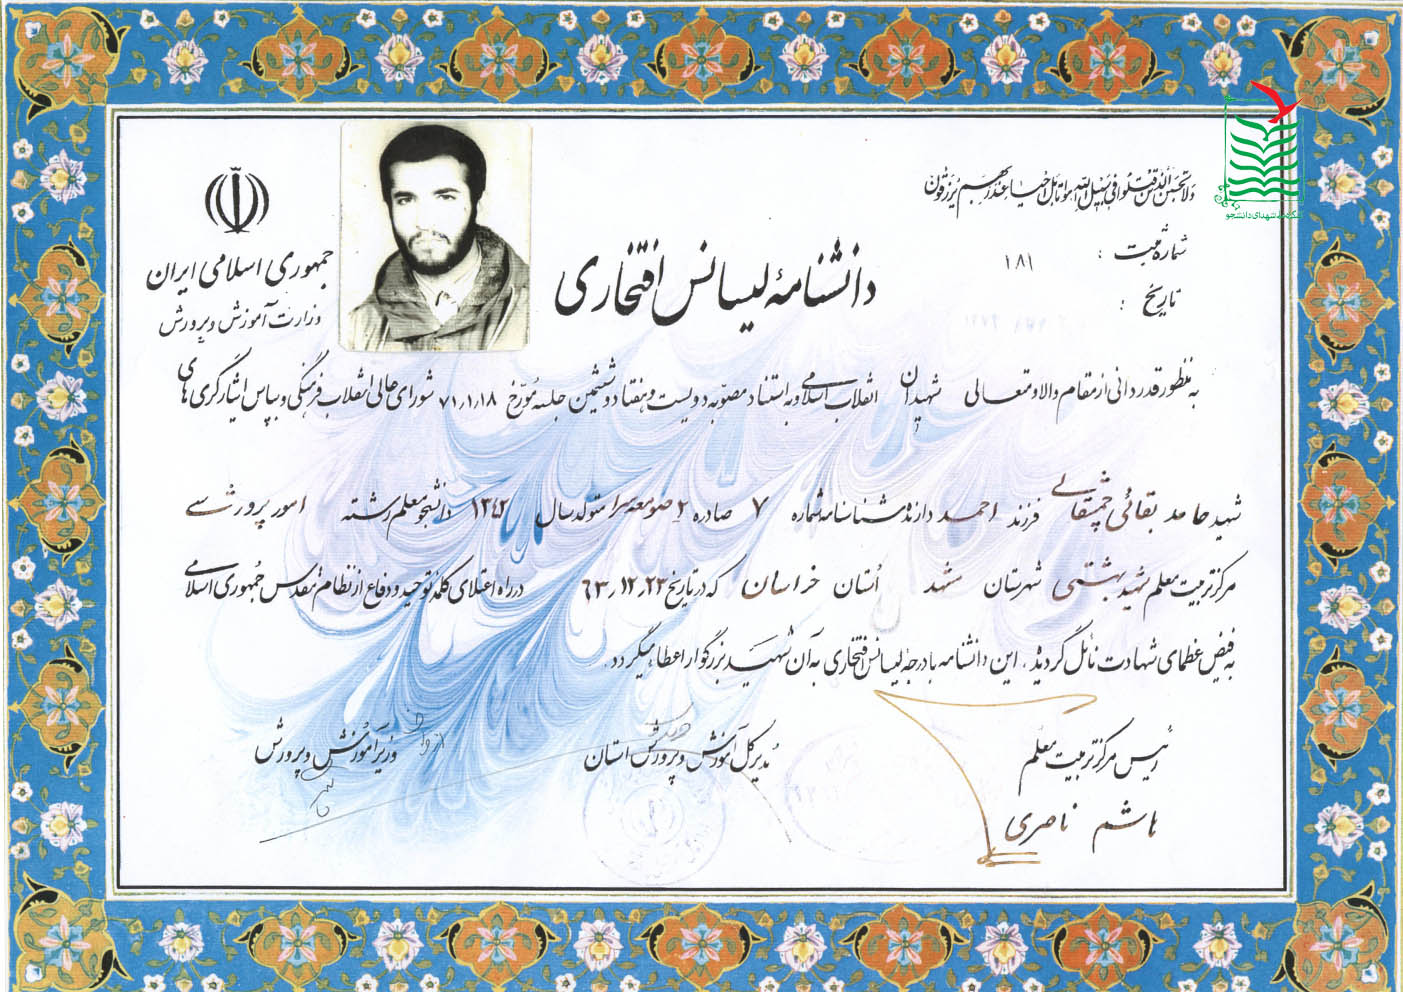 ولا تحسبن الذین قتلوا فی سبیل الله امواتا بل احیاء عند ربهم یرزقون
شهدای دانشجو
شماره ثبت : ۱۸۱
تاریخ :
جمهوری اسلامی ایران
وزارت آموزش و پرورش
دانشنامهٔ لیسانس افتخاری
به منظور قدردانی از مقام والا و متعالی شهیدان انقلاب اسلامی و به استناد مصوبه دویست و هفتاد و ششمین جلسه مورخ ۷۱٫۱٫۱۸ شورای عالی انقلاب فرهنگی و بپاس ایثارگری های
شهید حامد بقائی چمقالی فرزند احمد دارنده شناسنامه شماره ۷ صادره ۲ صومعه سرا متولد سال ۱۳۴۲ دانشجو معلم رشته امور پرورشی
مرکز تربیت معلم شهید بهشتی شهرستان مشهد استان خراسان که در تاریخ ۶۳٫۱۲٫۲۳ در راه اعتلای کلمه توحید و دفاع از نظام مقدس جمهوری اسلامی
به فیض عظمای شهادت نائل گردیده ، این دانشنامه با درجه لیسانس افتخاری به آن شهید بزرگوار اعطاء میگردد .
رئیس مرکز تربیت معلم
هاشم ناصری
مدیر کل آموزش و پرورش استان
وزیر آموزش و پرورش